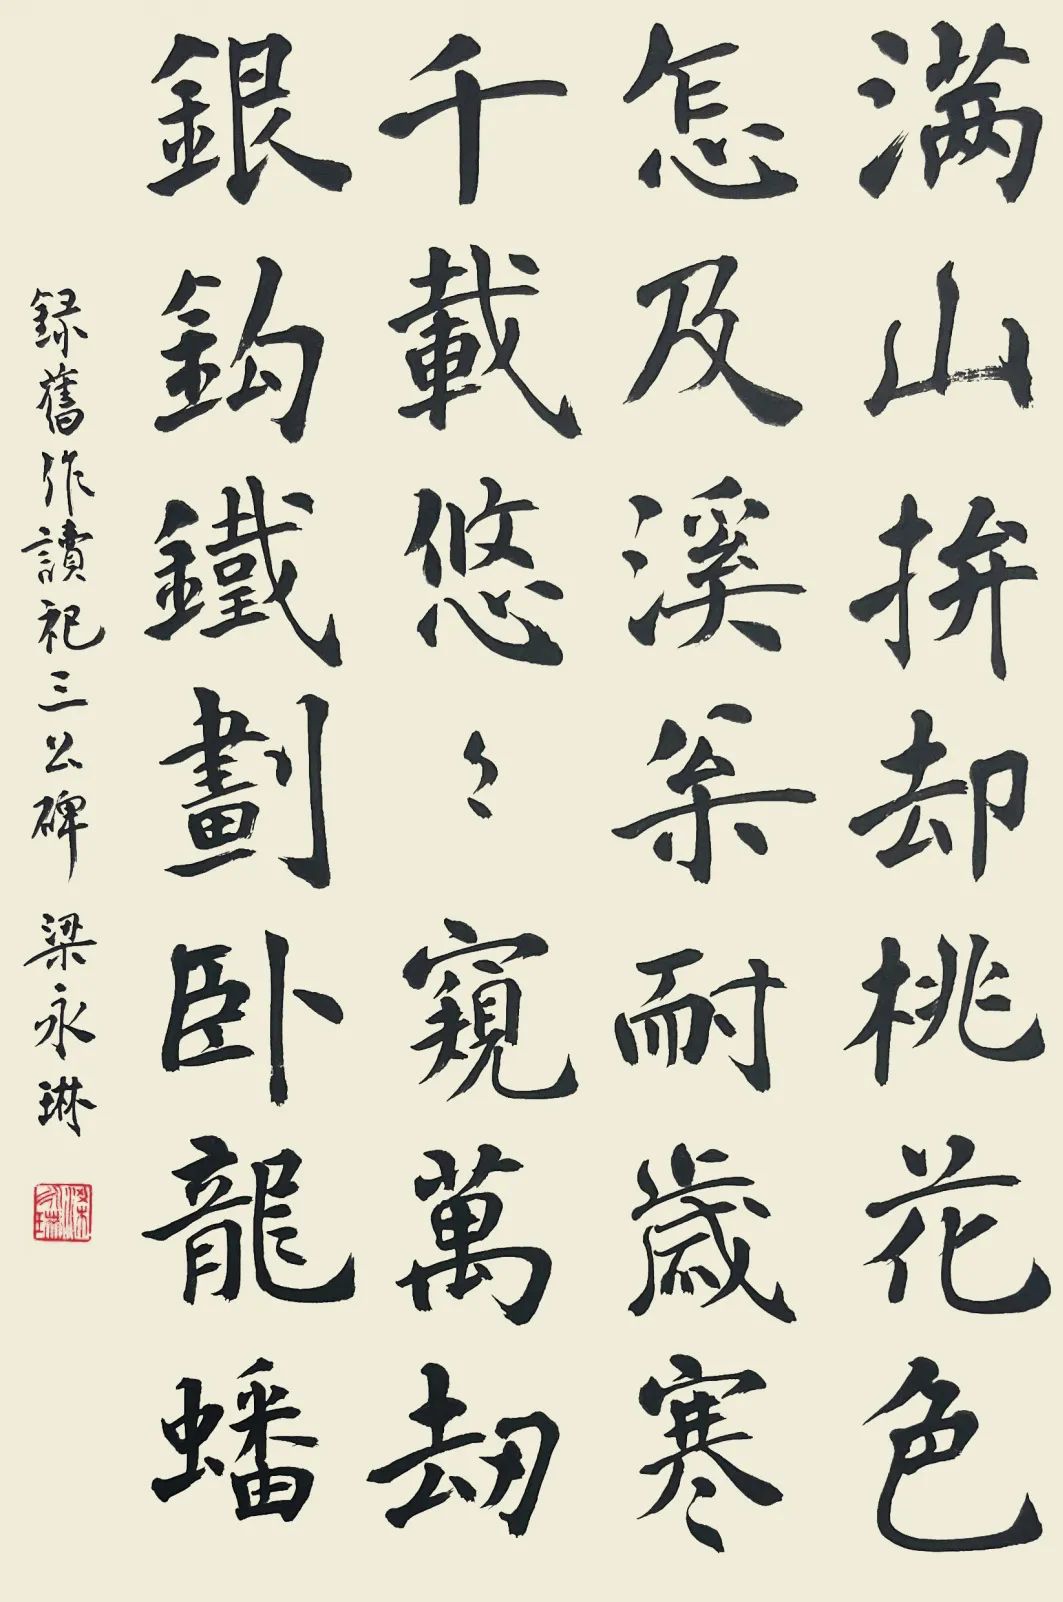 满山拚却桃花色
怎及溪枀耐歲寒
千載悠〻窺萬刼
銀鈎鐵劃卧龍蟠
録舊作讀祀三公碑 梁永琳
梁永琳